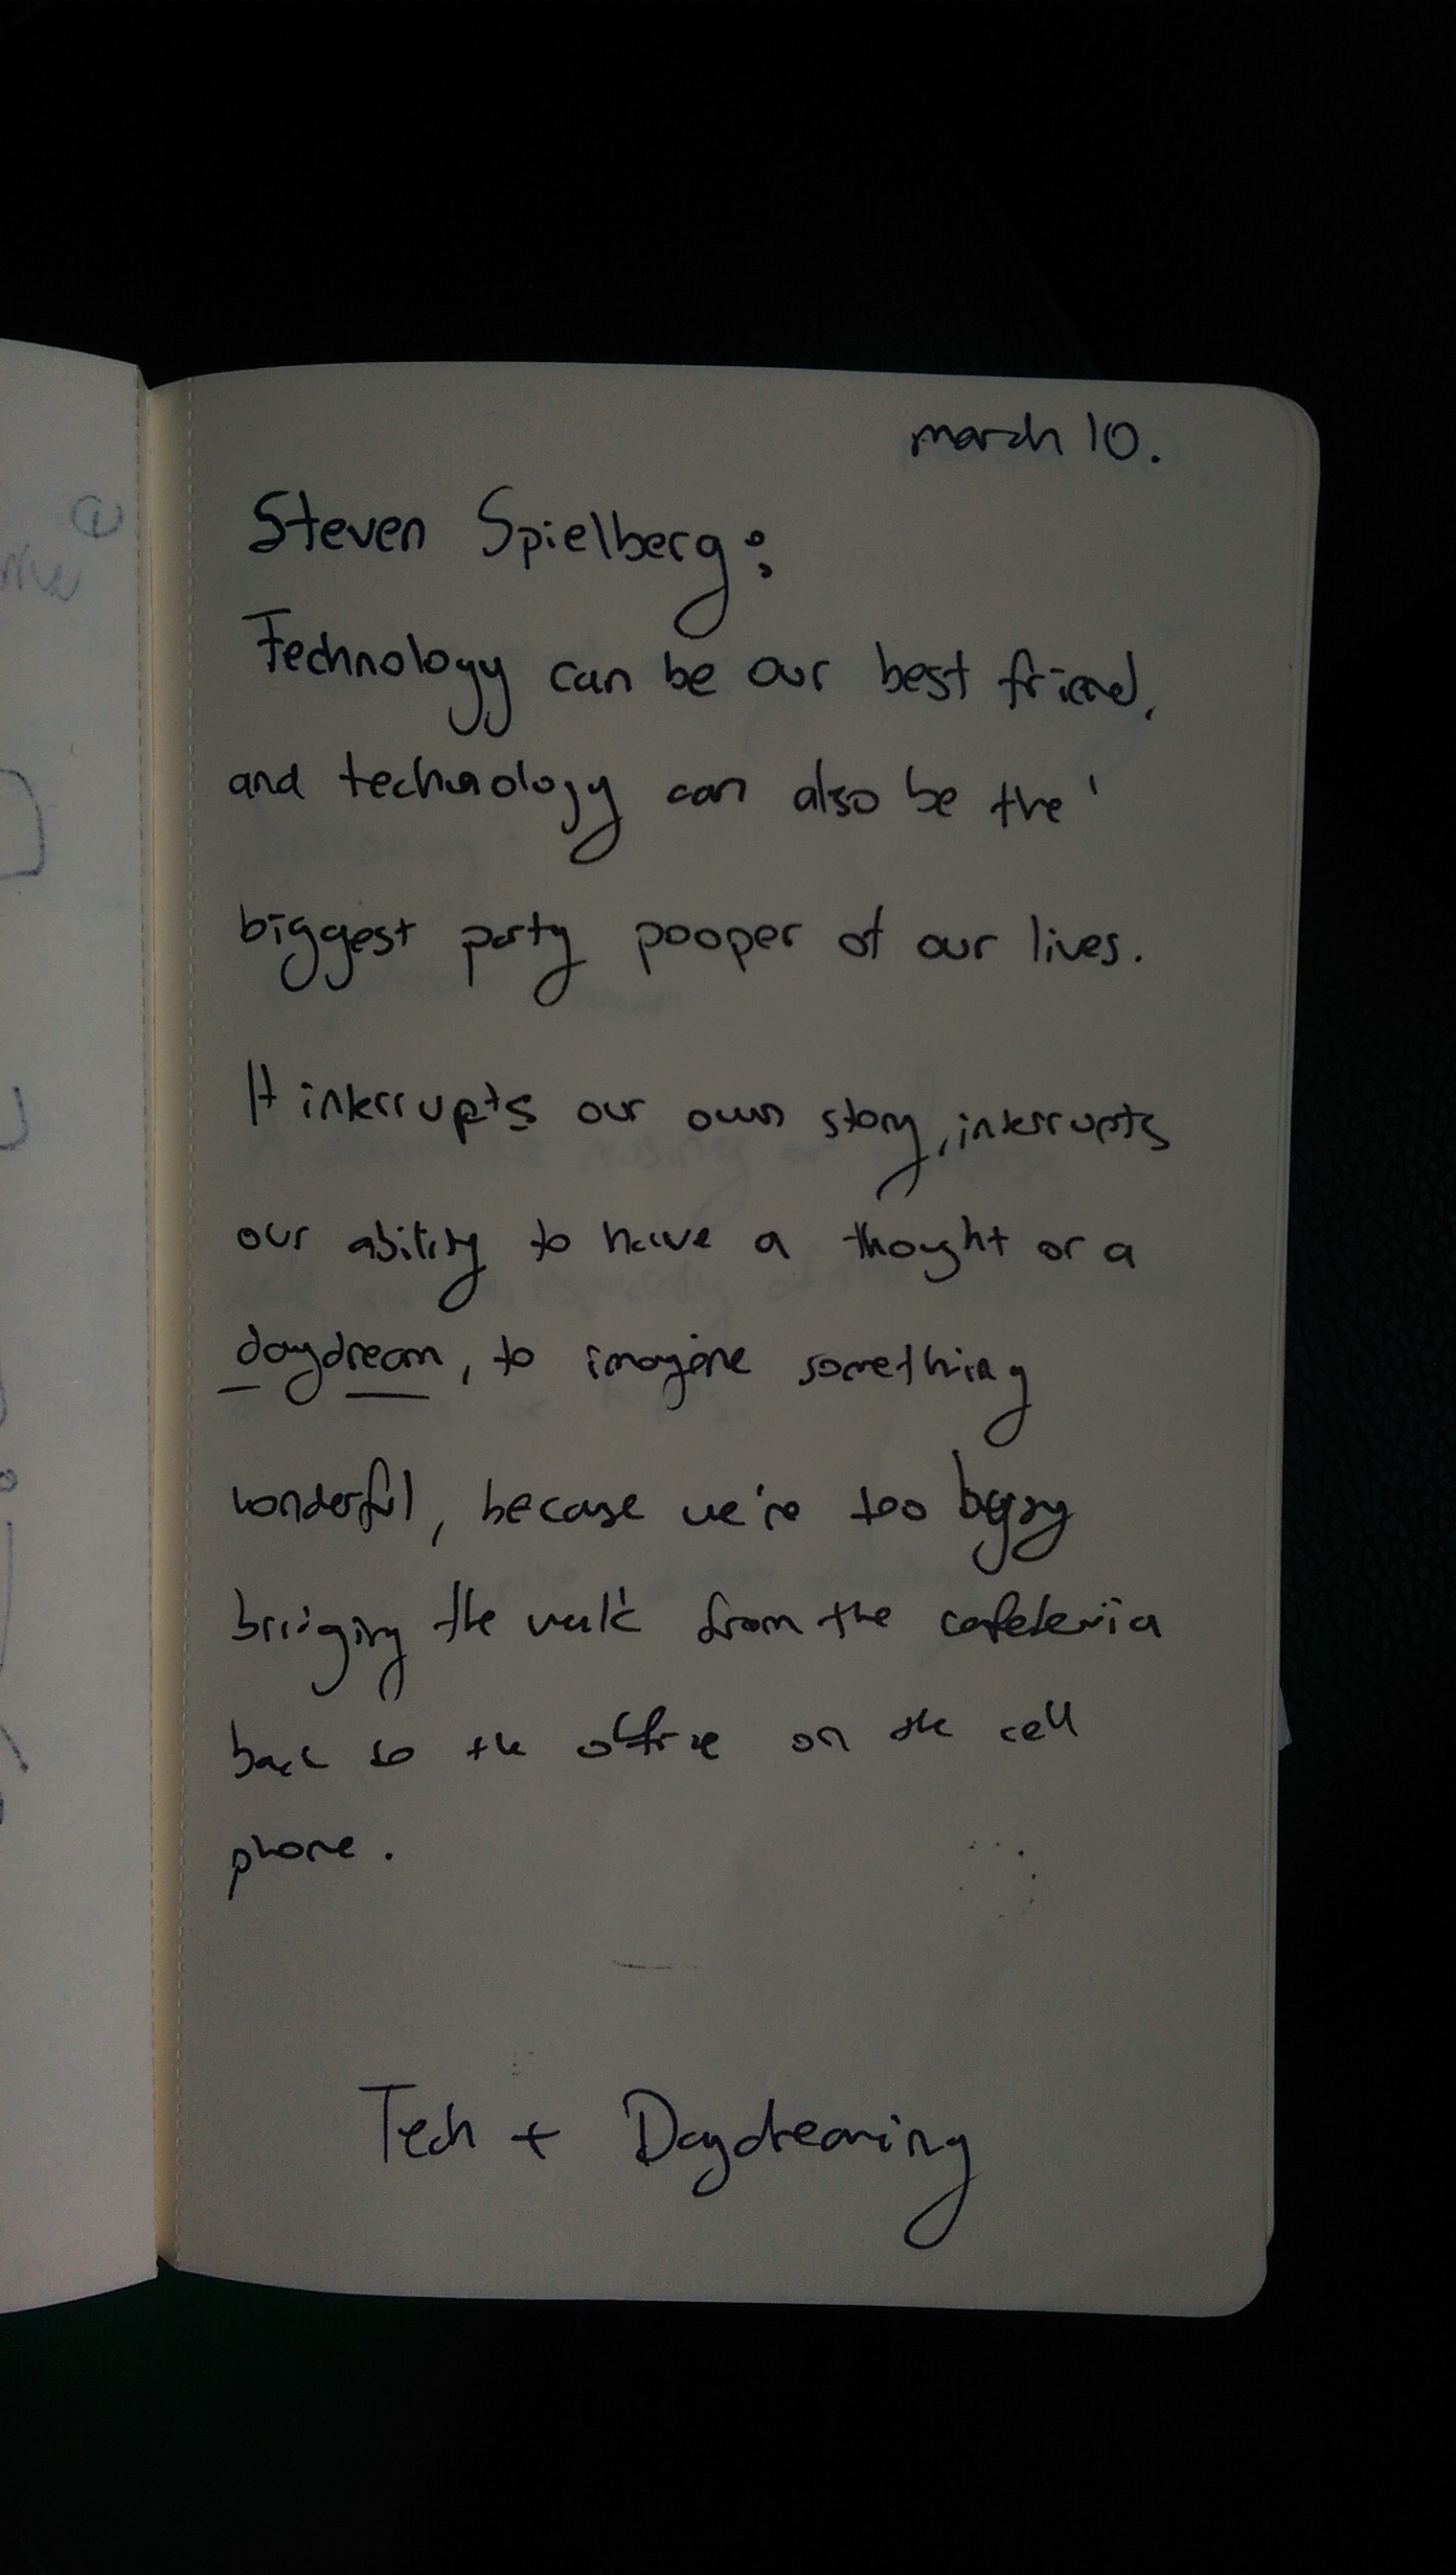 march 10.
Steven Spielberg:
Technology can be our best friend,
and technology can also be the
biggest party pooper of our lives.
It interrupts our own story, interrupts
our ability to have a thought or a
daydream, to imagine something
wonderful, because we're too busy
bridging the walk from the cafeteria
back to the office on the cell
phone.
Tech + Daydreaming